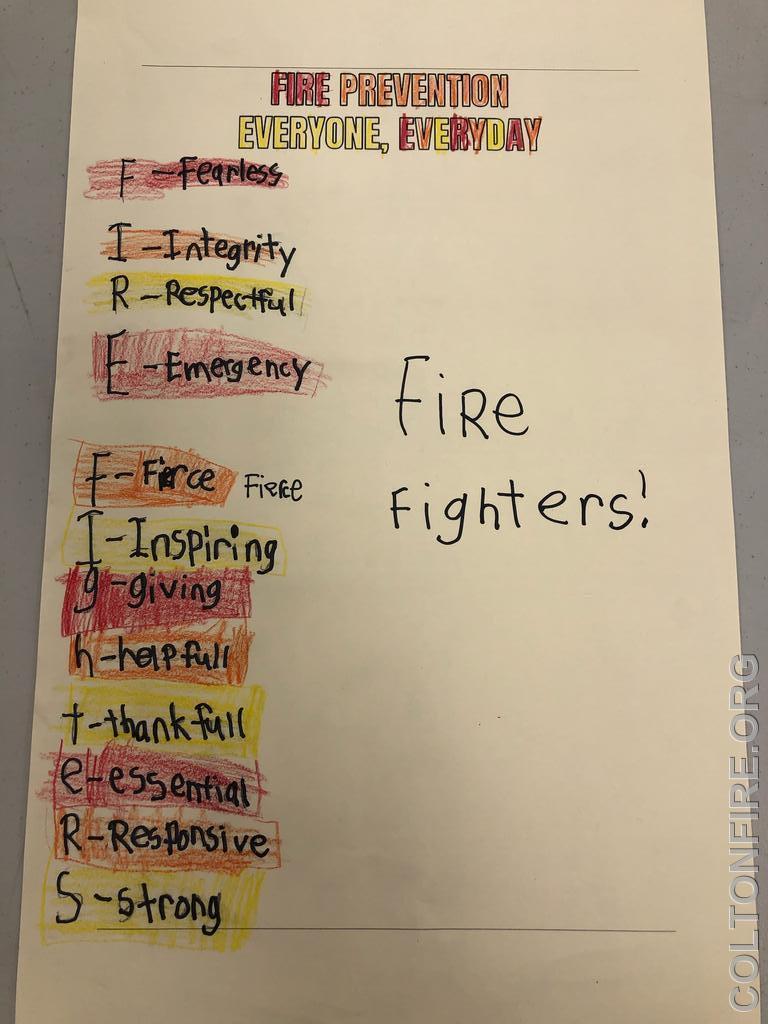 FIRE PREVENTION
EVERYONE, EVERYDAY
F - Fearless
I - Integrity
R - Respectful
E - Emergency
F - Fierce Fierce
I - Inspiring
g - giving
h - helpfull
t - thankfull
e - essential
R - Responsive
S - strong
FiRe
Fighters!
COLTONFIRE.ORG